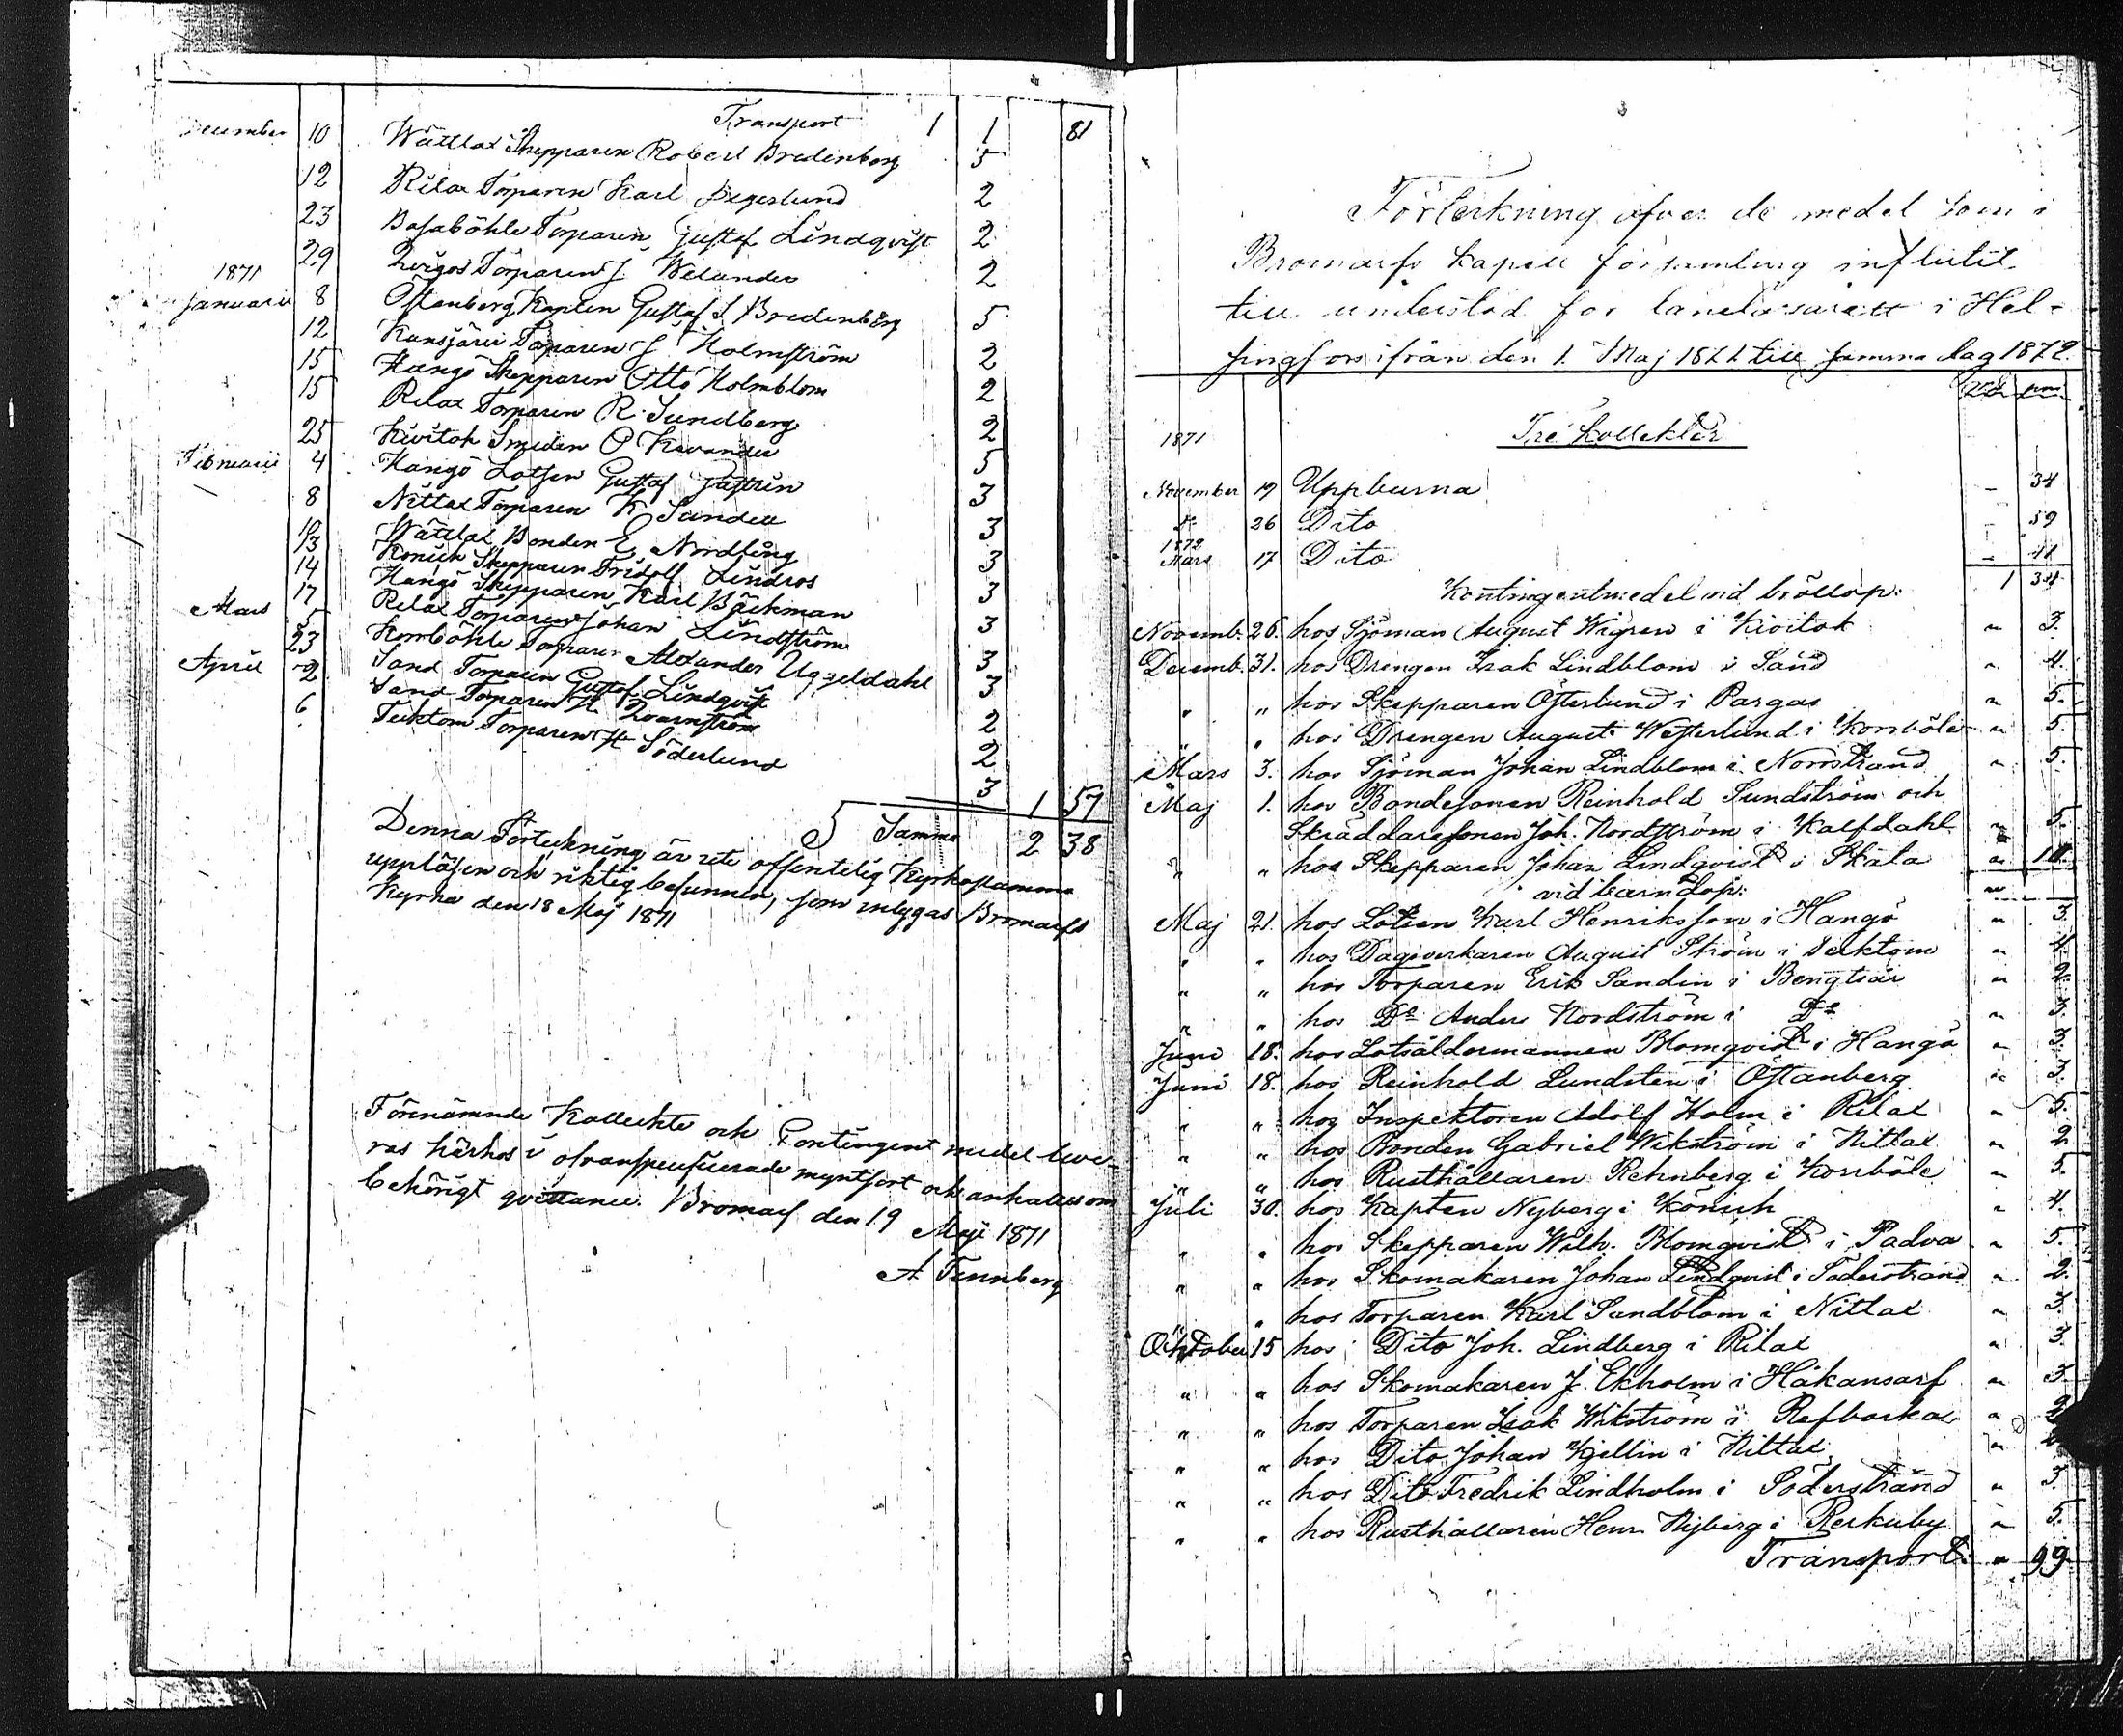 Transport 1 1 81
December 10 Wättlax Skepparen Robert Bredenberg 5
12 Rilax Torparen Karl Segerlund 2
23 Basaböhle Torparen Gustaf Lindqvist 2
29 Torparen J. Welander 2
1871
Januarii 8 Östanberg Kapten Gustaf J Bredenberg 5
12 Kansjärvi Torparen J Holmström 2
15 Hangö Skepparen Otto Holmblom 2
15 Rilax Torparen R. Sundberg 2
25 Kivitok Smeden O Kavander 5
Februarii 4 Hangö Lotsen Gustaf Sjöstrin 3
8 Nittlax Torparen K Sandell 3
12 Wättlax Bonden E. Nordling 3
13 Konich Skepparen Fridolf Lindros 3
14 Hangö Skepparen Karl Bäckman 3
17 Rilax Torparen Johan Lindström 3
Mars 5 Korsböhle Torparen Alexander Uggeldahl 3
23 Sand Torparen Gustaf Lindqvist 2
April 2 Sand Torparen H. Qvarnström 2
6 Tecktom Torparen H Söderlund 3
1 57
Summa 2 38
Denna Förteckning är uti offentelig Kyrkostamma
uppläsen och riktig befunnen, som intygas Bromarfs
Kyrka den 18 Maj 1871
Förenämnde Kollechte och Contingent medel leve-
ras härhos i ofvanspecificerade myntsort och anhålles om
behörigt qvittance. Bromarf den 19 Maji 1871
A Tennberg
Förteckning öfver de medel som i
Bromarfs Kapell församling influtit
till understöd för länelasarett i Hel-
singfors ifrån den 1. Maj 1871 till samma dag 1872.
Rub. pnn
1871 Tre Kollekter
November 19 Uppburna - 34
D:o 26 Dito - 59
1872
Mars 17 Dito - 41
1 34
Kontingentmedel vid bröllop:
Novemb. 26. hos Sjöman August Wigren i Kivitok " 3.
Decemb. 31. hos Drengen Isak Lindblom i Sand " 4.
" " hos Skepparen Österlund i Pargas " 5.
" " hos Drengen August Westerlund i Korsböle " 5.
Mars 3. hos Sjöman Johan Lindblom i Norrstrand " 5.
Maj 1. hos Bondesonen Reinhold Sundström och
Skräddaresonen Joh. Nordström i Kalfdahl " 5.
" " hos Skepparen Johan Lindqvist i Skåla " 10.
vid barndop:
Maj 21. hos Lotsen Karl Henriksson i Hangö " 3.
" " hos Dagsverkaren August Ström i Tecktom " 4.
" " hos Torparen Erik Sandin i Bengtsär " 2.
" " hos D:o Anders Nordström i D:o " 3.
Juni 18. hos Lotsåldermannen Blomqvist i Hangö " 3.
Juni 18. hos Reinhold Lundsten i Östanberg " 3.
" " hos Inspektoren Adolf Holm i Rilax " 5.
" " hos Bonden Gabriel Wikström i Nittlax " 2
" " hos Rusthållaren Rehnberg i Korsböle " 5.
Juli 30. hos Kapten Nyberg i Könich " 4.
" " hos Skepparen Wilh. Blomqvist i Padva " 5.
" " hos Skomakaren Johan Lindqvist i Söderstrand " 2.
" " hos Torparen Karl Sundblom i Nittlax " 3.
Oktober 15 hos Dito Joh. Lindberg i Rilax " 3.
" " hos Skomakaren J. Ekholm i Håkansarf " 3.
" " hos Torparen Isak Wikström i Refbacka " 2
" " hos Dito Johan Kjellin i Nittlax "
" " hos Dito Fredrik Lindholm i Söderstrand " 3.
" " hos Rusthållaren Henr. Nyberg i Rerkuby " 5.
Transport " 99